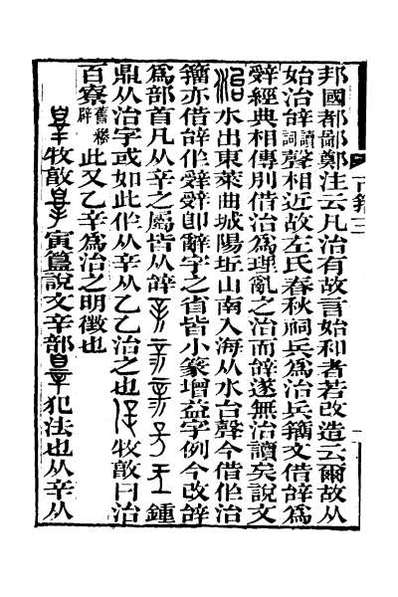 邦國都鄙鄭注云凡治有故言始和者若改造云爾故从
始治辝讀詞聲相近故左氏春秋祠兵為治兵籀文借辝為
辤經典相傳別借治為理亂之治而辝遂無治讀矣說文
水出東萊曲城陽丘山南入海从水台聲今借作治
籀亦借辝作辤辤即辭字之省皆小篆增益字例今改辝
為部首凡从辛之屬皆从辝 鍾
鼎从治字或如此作从辛从乙乙治之也 牧敦曰治
百寮舊釋辟此又乙辛為治之明徵也
牧敦 寅簋說文辛部 犯法也从辛从